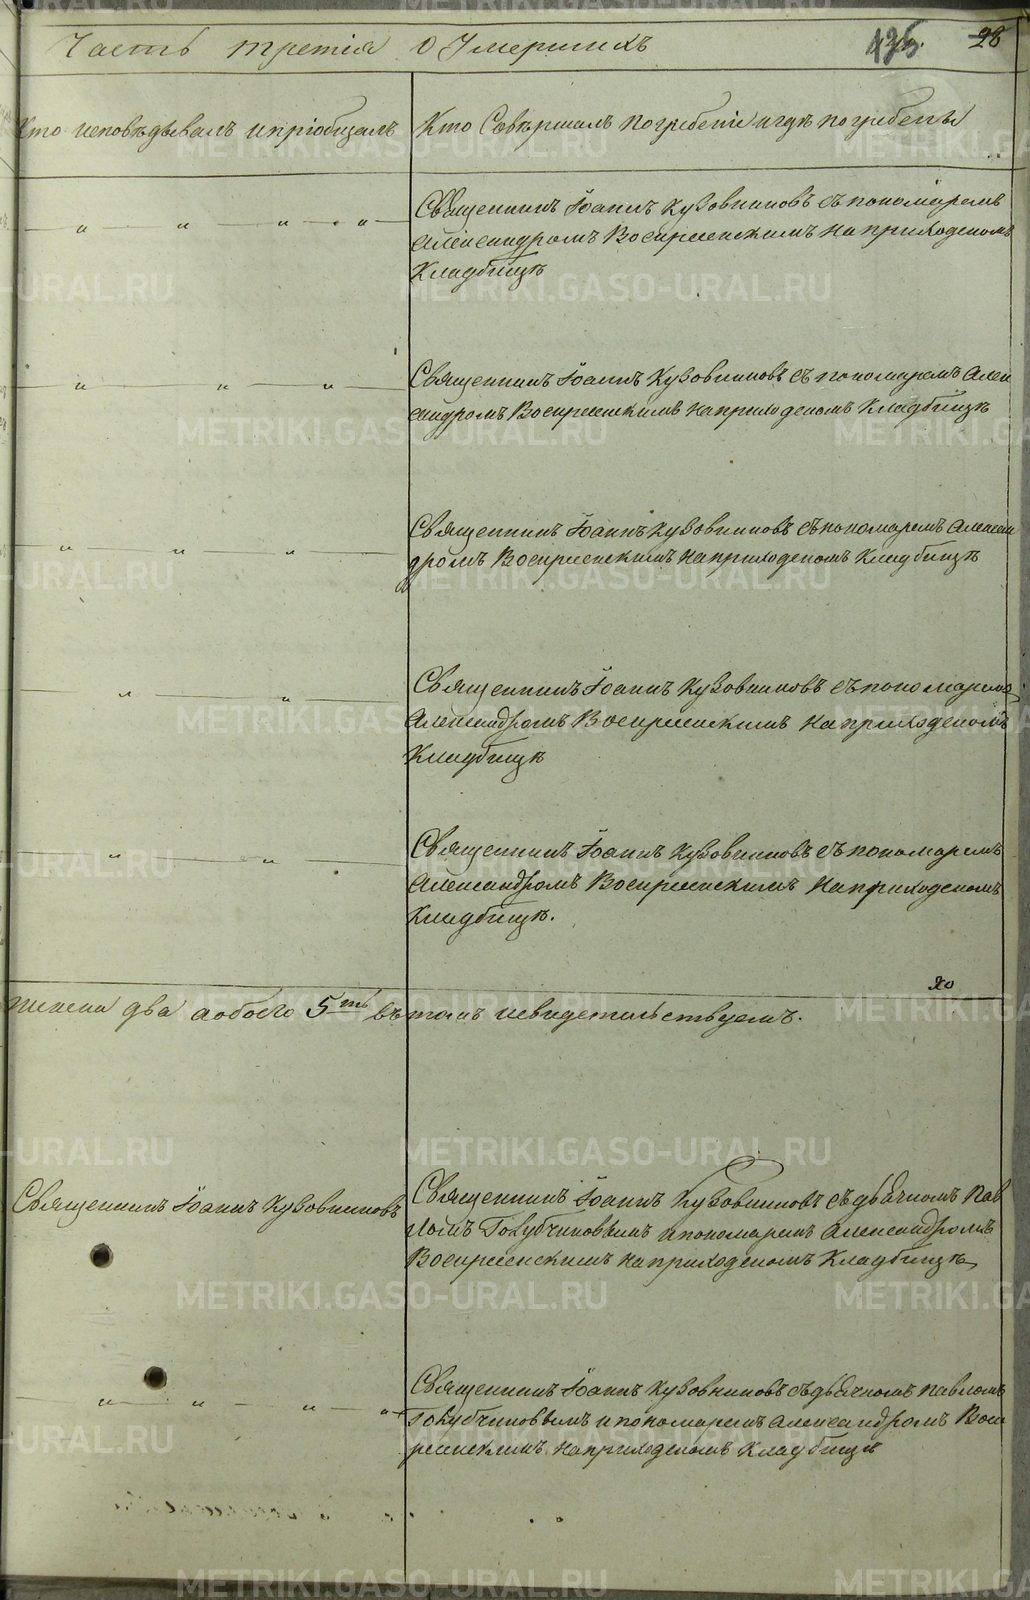 Часть третія о Умершихъ
28
Кто исповѣдывалъ и пріобщалъ
Кто Совѣршалъ погребеніе и гдѣ погребены
Священникъ Іоаннъ Кузовниковъ съ пономаремъ
Александромъ Воскресенскимъ на приходскомъ
Кладбищѣ
Священникъ Іоаннъ Кузовниковъ съ пономаремъ Алек
сандромъ Воскресенскимъ на приходскомъ Кладбищѣ
Священникъ Іоаннъ Кузовниковъ съ пономаремъ Алексан
дромъ Воскресенскимъ на приходскомъ Кладбищѣ
Священникъ Іоаннъ Кузовниковъ съ пономаремъ
Александромъ Воскресенскимъ на приходскомъ
Кладбищѣ
Священникъ Іоаннъ Кузовниковъ съ пономаремъ
Александромъ Воскресенскимъ на приходскомъ
Кладбищѣ.
два а обоего 5ть въ томъ и свидетельствуемъ.
Священникъ Іоаннъ Кузовниковъ
Священникъ Іоаннъ Кузовниковъ съ дьячкомъ Пав
ломъ и пономаремъ Александромъ
Воскресенскимъ на приходскомъ Кладбищѣ
Священникъ Іоаннъ Кузовниковъ съ дьячкомъ Павломъ
и пономаремъ Александромъ Воск
ресенскимъ на приходскомъ Кладбищѣ
METRIKI.GASO-URAL.RU